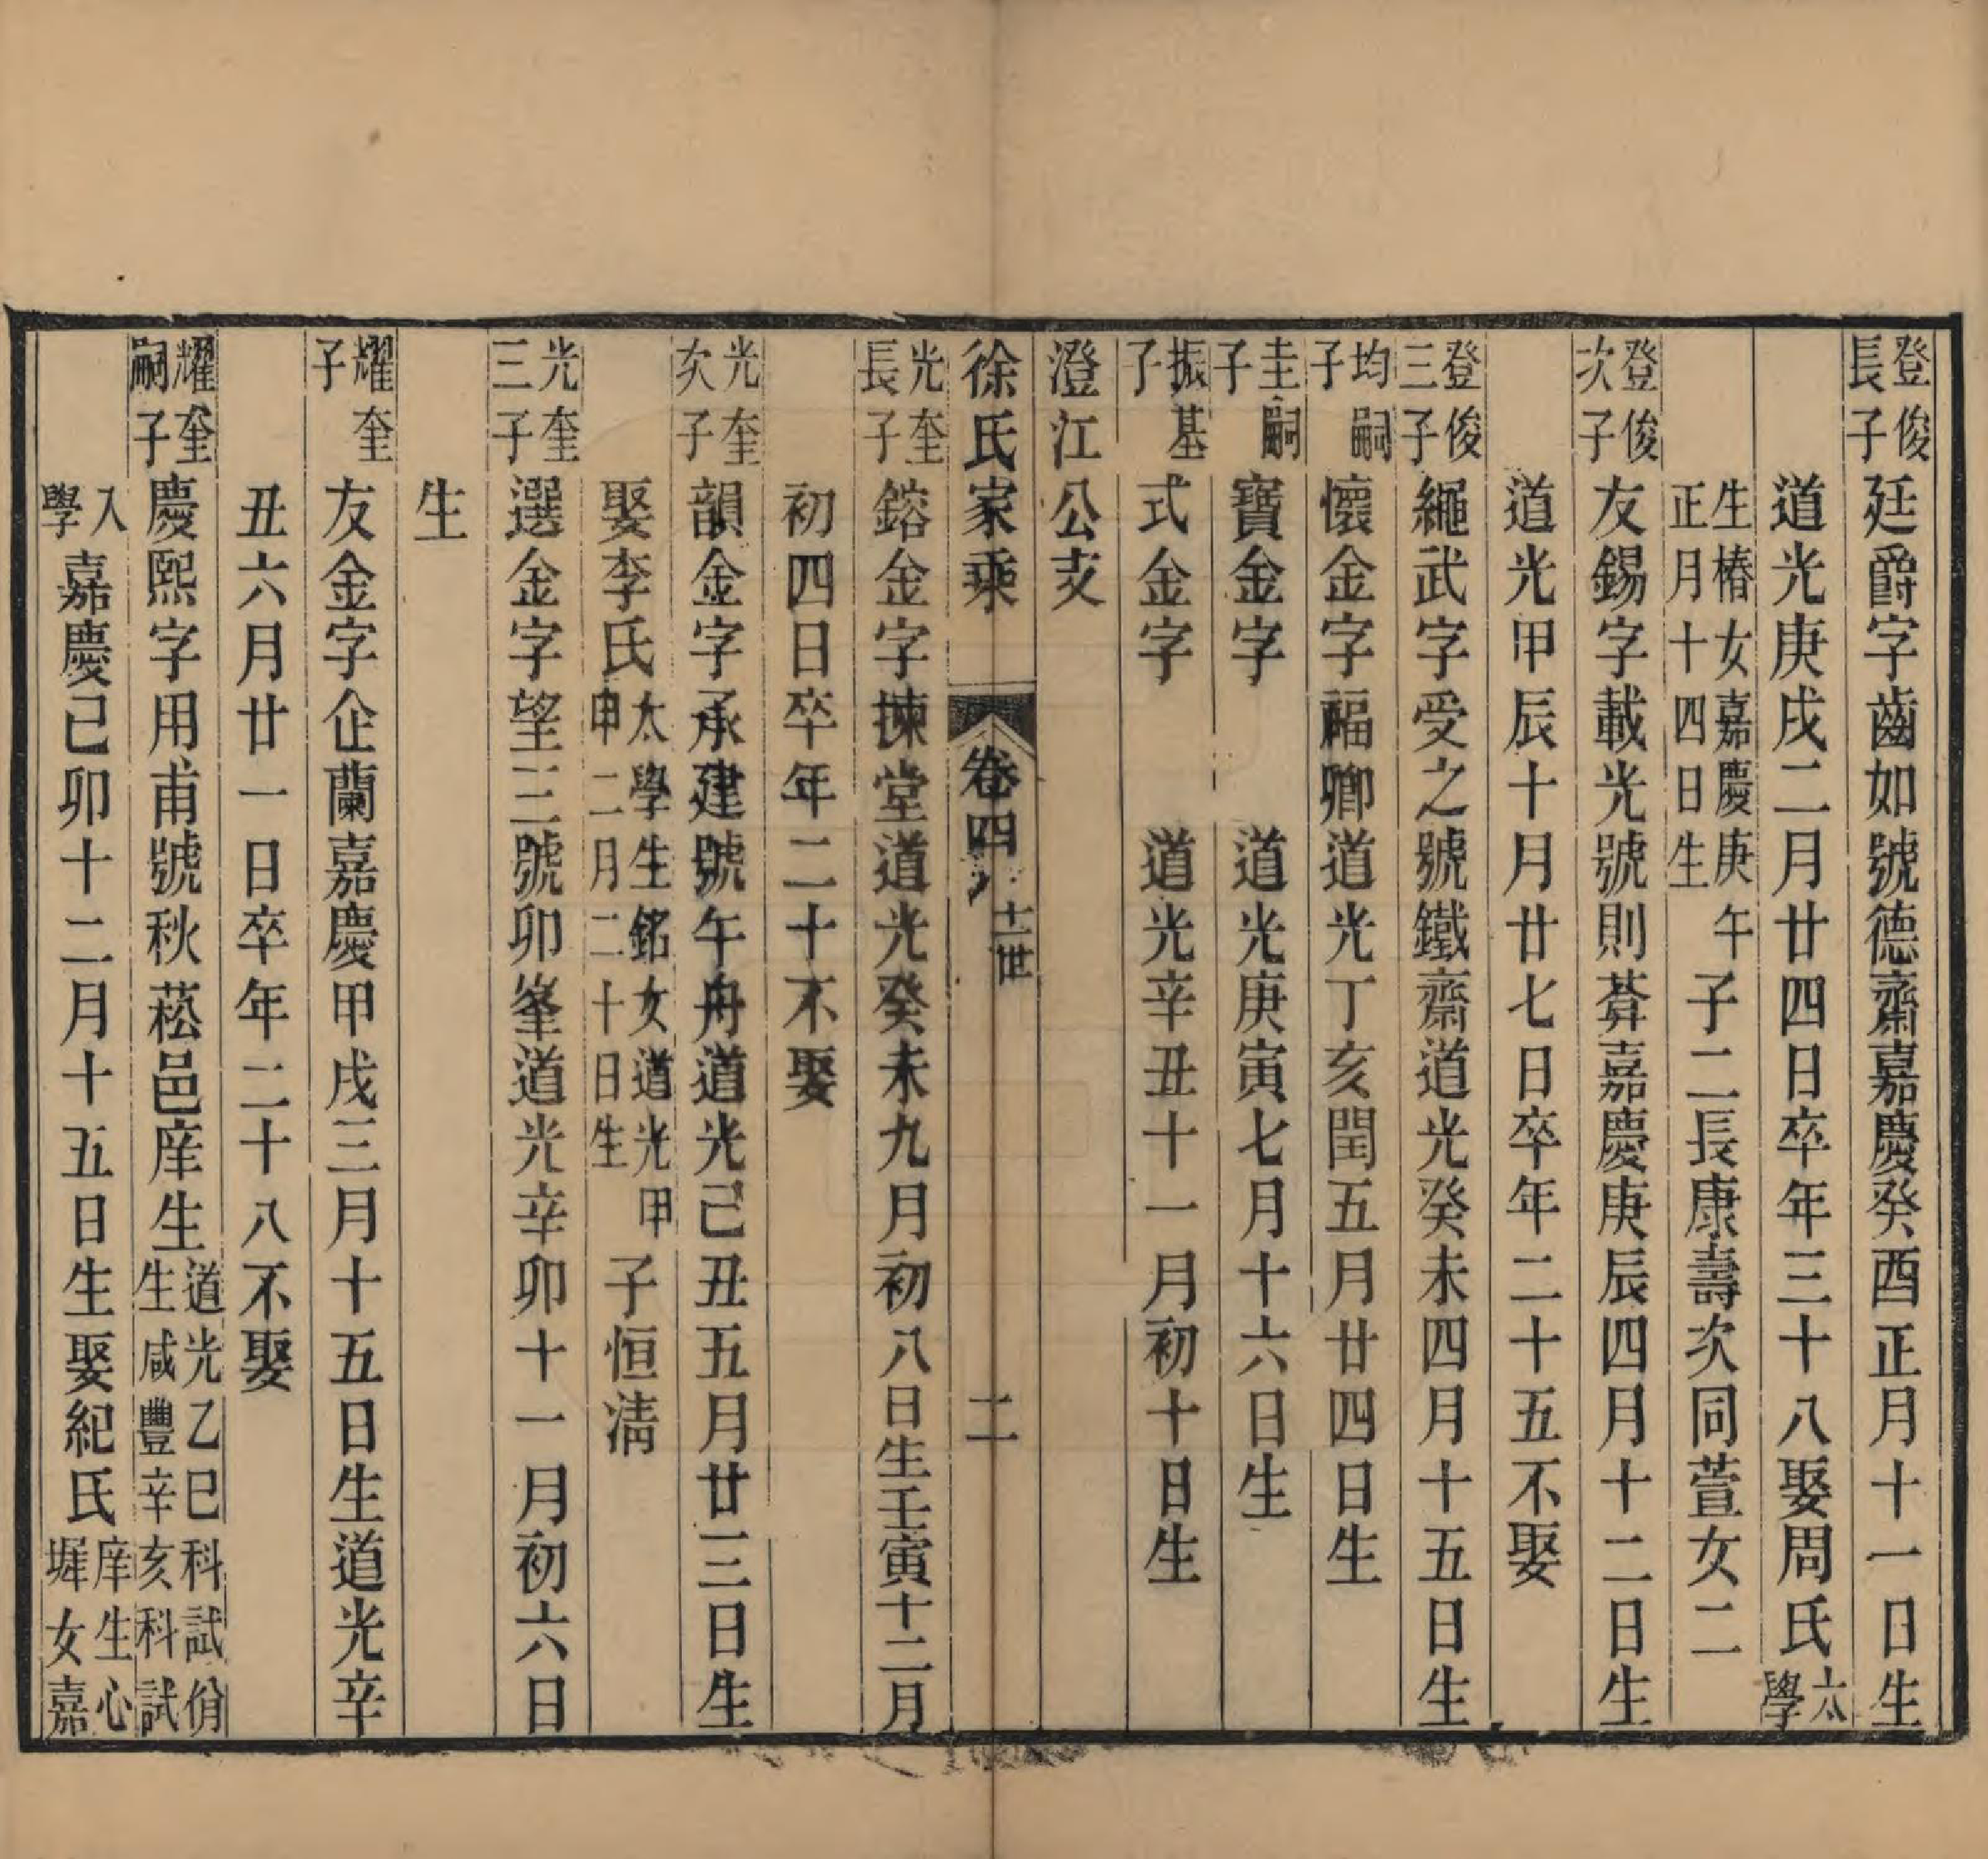 登俊長子廷爵字齒如號德齋嘉慶癸酉正月十一日生
道光庚戌二月廿四日卒年三十八娶周氏太學
生椿女嘉慶庚午正月十四日生子二長康壽次同萱女二
登俊次子友錫字載光號則葊嘉慶庚辰四月十二日生
道光甲辰十月廿七日卒年二十五不娶
登俊三子繩武字受之號鐵齋道光癸未四月十五日生
均嗣子懷金字福卿道光丁亥閏五月廿四日生
圭嗣子寶金字 道光庚寅七月十六日生
振基子式金字 道光辛丑十一月初十日生
澄江公支
徐氏家乘 卷四 十世 二
光奎長子鎔金字揀堂道光癸未九月初八日生壬寅十二月
初四日卒年二十不娶
光奎次子韻金字承建號午舟道光己丑五月廿三日生
娶李氏太學生銘女道光甲申二月二十日生子恒淸
光奎三子選金字望三號卯峯道光辛卯十一月初六日
生
耀奎子友金字企蘭嘉慶甲戌三月十五日生道光辛
丑六月廿一日卒年二十八不娶
耀奎嗣子慶熙字用甫號秋菘邑庠生道光乙巳科試佾生咸豐辛亥科試
入學嘉慶己卯十二月十五日生娶紀氏庠生心墀女嘉